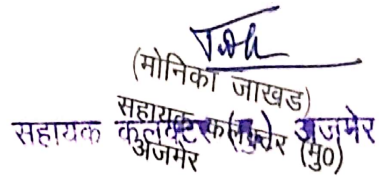 (मोनिका जाखड)
सहायक कलेक्टर (मु0)
अजमेर
सहायक कलेक्टर (मु0) अजमेर